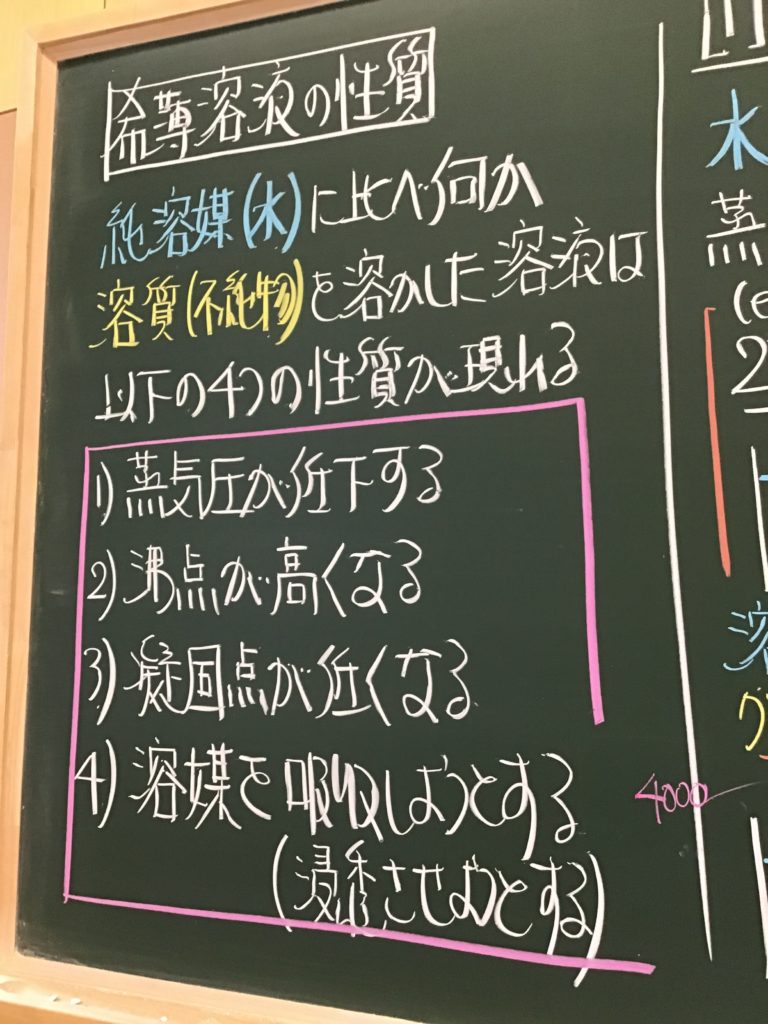 希薄溶液の性質
純溶媒(水)に比べ何か
溶質(不純物)を溶かした溶液は
以下の4つの性質が現れる
1)蒸気圧が低下する
2)沸点が高くなる
3)凝固点が低くなる
4)溶媒を吸収しようとする
(浸透させようとする)
4000
水
蒸
(e
2
溶